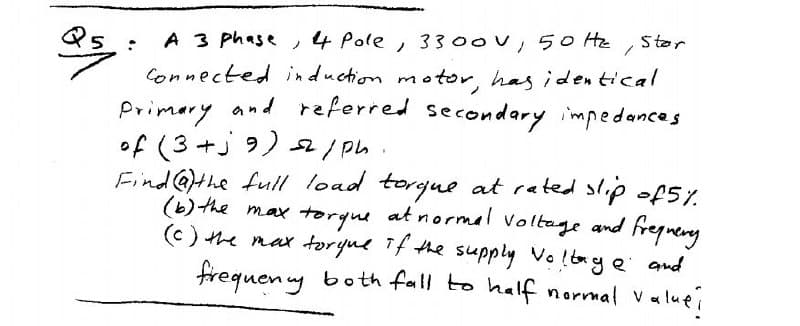 Q5 : A 3 phase , 4 Pole , 3300V , 50 Hz , Star
Connected induction motor, has identical
Primary and referred secondary impedances
of (3+j9) Ω/ph.
Find (a) the full load torque at rated slip of 5%.
(b) the max torque at normal voltage and freqnency
(c) the max torque if the supply Voltage and
frequency both fall to half normal value;